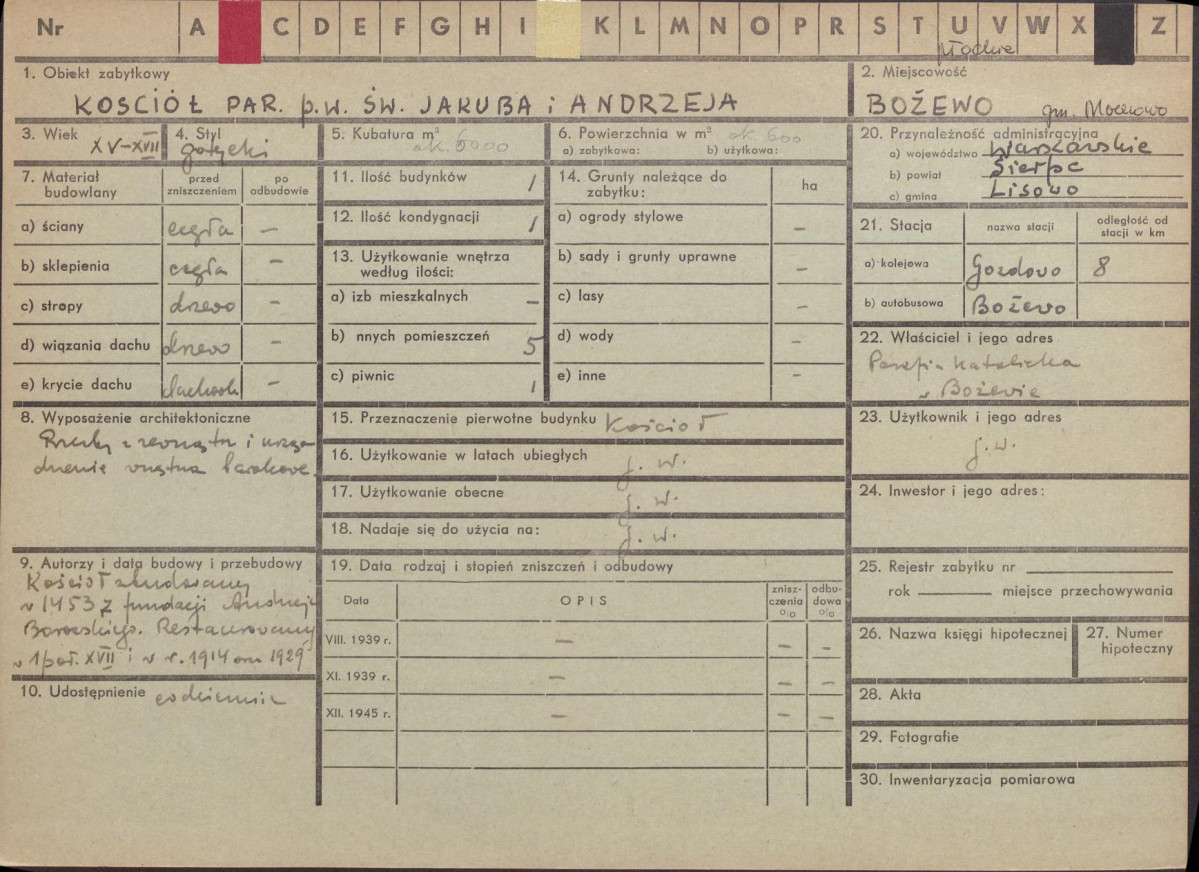 Nr A C D E F G H I K L M N O P R S T U V W X Z
płockie
1. Obiekt zabytkowy
KOSCIÓŁ PAR. p.w. ŚW. JAKUBA i ANDRZEJA
2. Miejscowość
BOŻEWO gm. Mochowo
3. Wiek
XV-XVII
4. Styl
gotycki
5. Kubatura m³
ok. 6000
6. Powierzchnia w m² ok. 600
a) zabytkowa: b) użytkowa:
20. Przynależność administracyjna
a) województwo Warszawskie
b) powiat Sierpc
c) gmina Lisowo
7. Materiał budowlany
przed zniszczeniem
po odbudowie
a) ściany cegła –
b) sklepienia cegła –
c) stropy drzewo –
d) wiązania dachu drzewo –
e) krycie dachu dachówk –
11. Ilość budynków 1
12. Ilość kondygnacji 1
13. Użytkowanie wnętrza
według ilości:
a) izb mieszkalnych –
b) nnych pomieszczeń 5
c) piwnic 1
14. Grunty należące do
zabytku: ha
a) ogrody stylowe –
b) sady i grunty uprawne –
c) lasy –
d) wody –
e) inne –
21. Stacja
nazwa stacji
odległość od
stacji w km
a) kolejowa Gozdowo 8
b) autobusowa Bożewo
22. Właściciel i jego adres
Parafia Katolicka
w Bożewie
8. Wyposażenie architektoniczne
zewnątrz i urzą-
dzenie wnętrza barokowe.
15. Przeznaczenie pierwotne budynku Kościoł
16. Użytkowanie w latach ubiegłych j. w.
17. Użytkowanie obecne j. w.
18. Nadaje się do użycia na: j. w.
23. Użytkownik i jego adres
j.w.
24. Inwestor i jego adres:
9. Autorzy i data budowy i przebudowy
Kościoł zbudowany
w 1453 z fundacji Andrzeja
Borowskiego. Restaurowany
w 1 poł. XVII i w r. 1914 oraz 1929
10. Udostępnienie codziennie
19. Data rodzaj i stopień zniszczeń i odbudowy
Data
OPIS
znisz-
czenia
o/o
odbu-
dowa
o/o
VIII. 1939 r. – – –
XI. 1939 r. – – –
XII. 1945 r. – – –
25. Rejestr zabytku nr
rok miejsce przechowywania
26. Nazwa księgi hipotecznej
27. Numer
hipoteczny
28. Akta
29. Fotografie
30. Inwentaryzacja pomiarowa